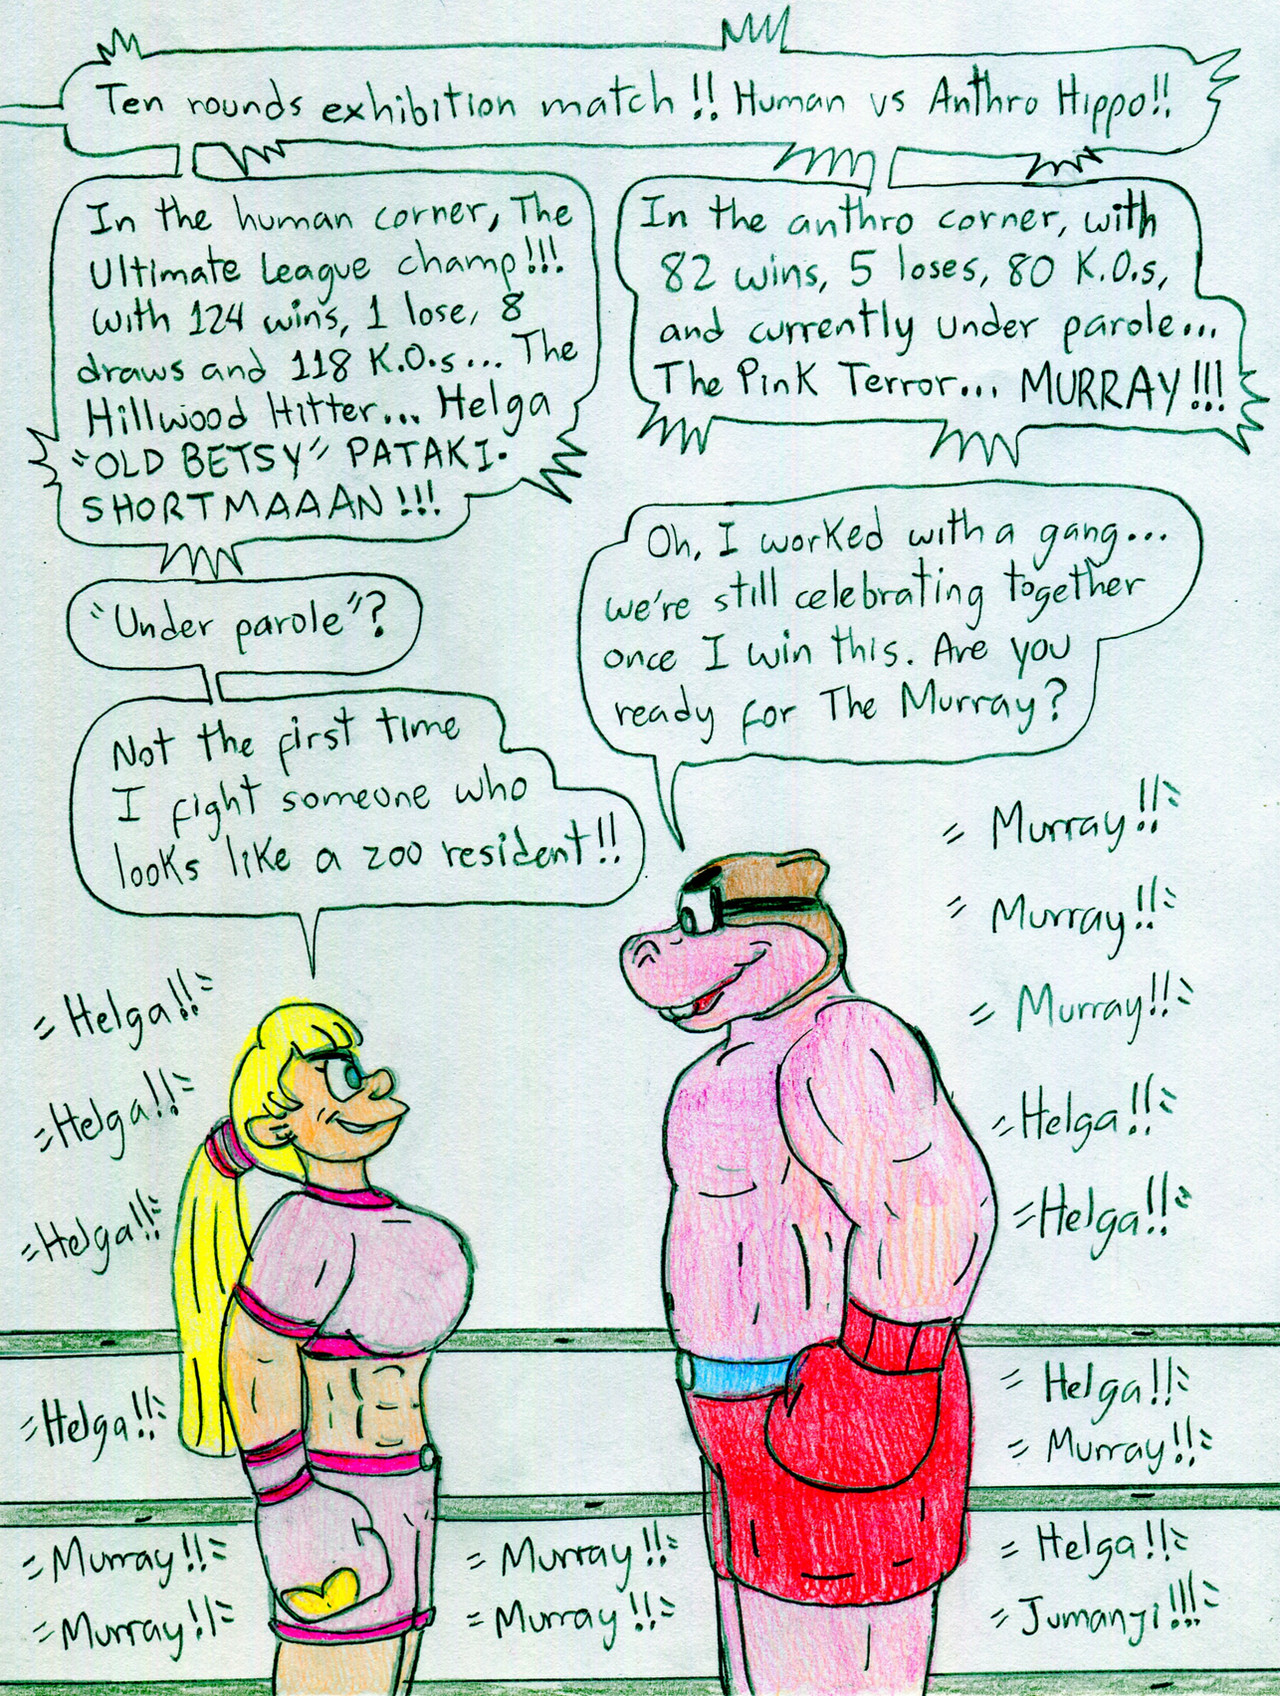 Ten rounds exhibition match!! Human vs Anthro Hippo!!
In the human corner, The
Ultimate League champ!!!
with 124 wins, 1 lose, 8
draws and 118 K.O.s... The
Hillwood Hitter... Helga
"OLD BETSY" PATAKI-
SHORTMAAAN!!!
In the anthro corner, with
82 wins, 5 loses, 80 K.O.s,
and currently under parole...
The Pink Terror... MURRAY!!!
"Under parole"?
Not the first time
I fight someone who
looks like a zoo resident!!
Oh, I worked with a gang...
we're still celebrating together
once I win this. Are you
ready for The Murray?
Helga!!
Helga!!
Helga!!
Helga!!
Murray!!
Murray!!
Murray!!
Murray!!
Murray!!
Murray!!
Murray!!
Helga!!
Helga!!
Helga!!
Murray!!
Helga!!
Jumanyi!!!